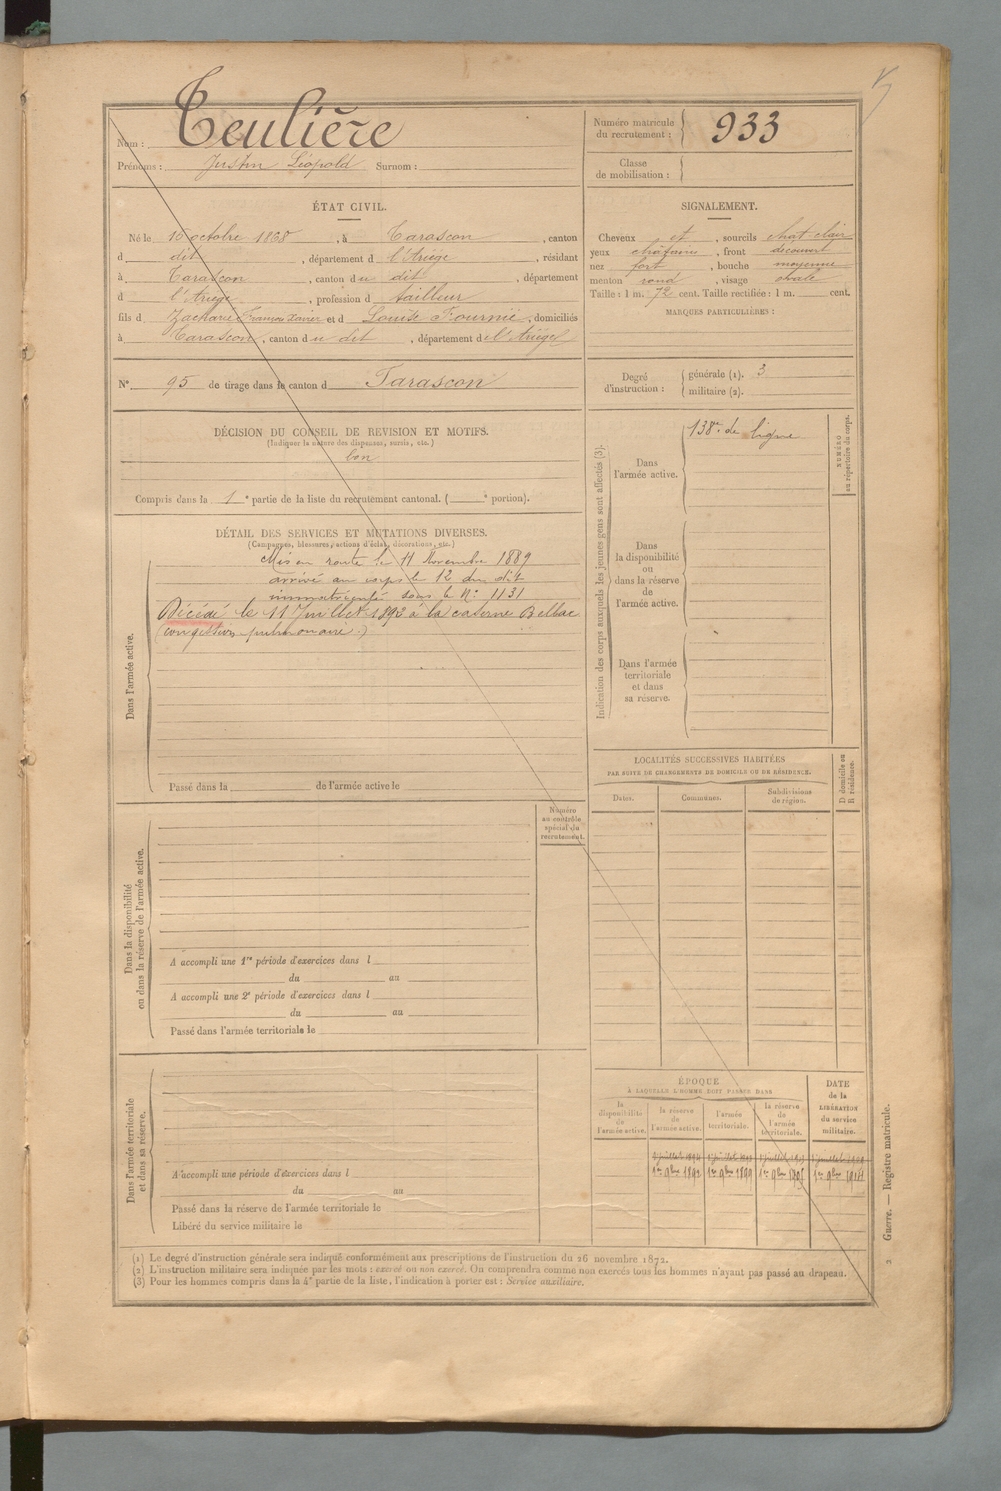 Nom : Teulière
Prénoms : Justin Léopold Surnom :
Numéro matricule du recrutement : 933
Classe de mobilisation :
ÉTAT CIVIL.
Né le octobre 1868, à Tarascon, canton
d dit, département d l'Ariège, résidant
à Tarascon, canton du dit, département
d l'Ariège, profession d tailleur
fils d Zacharie François Xavier et d Louise Fournié, domiciliés
à Tarascon, canton du dit, département de l'Ariège
N° 95 de tirage dans le canton d Tarascon
SIGNALEMENT.
Cheveux et, sourcils chat clair
yeux châtains, front découvert
nez fort, bouche moyenne
menton rond, visage ovale
Taille : 1 m. 72 cent. Taille rectifiée : 1 m. cent.
MARQUES PARTICULIÈRES :
Degré d'instruction : générale (1). 3
militaire (2).
DÉCISION DU CONSEIL DE REVISION ET MOTIFS.
(Indiquer la nature des dispenses, sursis, etc.)
bon
Compris dans la 1e partie de la liste du recrutement cantonal. ( e portion).
DÉTAIL DES SERVICES ET MUTATIONS DIVERSES.
(Campagnes, blessures, actions d'éclat, décorations, etc.)
Dans l'armée active.
Mis en route le 11 Novembre 1889
arrivé au corps le 12 du dit
immatriculé sous le N° 1131
Décédé le 11 Juillet 1892 à la caserne Bellac
(congestion pulmonaire.)
Passé dans la de l'armée active le
Indication des corps auxquels les jeunes gens sont affectés (3).
Dans l'armée active.
138e de ligne
NUMÉRO au répertoire du corps.
Dans la disponibilité ou dans la réserve de l'armée active.
Dans l'armée territoriale et dans sa réserve.
LOCALITÉS SUCCESSIVES HABITÉES
PAR SUITE DE CHANGEMENTS DE DOMICILE OU DE RÉSIDENCE.
Dates. Communes. Subdivisions de région. D domicile ou R résidence.
Numéro au contrôle spécial du recrutement.
Dans la disponibilité ou dans la réserve de l'armée active.
A accompli une 1re période d'exercices dans l
du au
A accompli une 2e période d'exercices dans l
du au
Passé dans l'armée territoriale le
Dans l'armée territoriale et dans sa réserve.
A accompli une période d'exercices dans l
du au
Passé dans la réserve de l'armée territoriale le
Libéré du service militaire le
ÉPOQUE
À LAQUELLE L'HOMME DOIT PASSER DANS
la disponibilité de l'armée active. la réserve de l'armée active. l'armée territoriale. la réserve de l'armée territoriale.
DATE de la LIBÉRATION du service militaire.
1er 9bre 1892 1er 9bre 1899 1er 9bre
(1) Le degré d'instruction générale sera indiqué conformément aux prescriptions de l'instruction du 26 novembre 1872.
(2) L'instruction militaire sera indiquée par les mots : exercé ou non exercé. On comprendra comme non exercés tous les hommes n'ayant pas passé au drapeau.
(3) Pour les hommes compris dans la 4e partie de la liste, l'indication à porter est : Service auxiliaire.
2 Guerre. — Registre matricule.